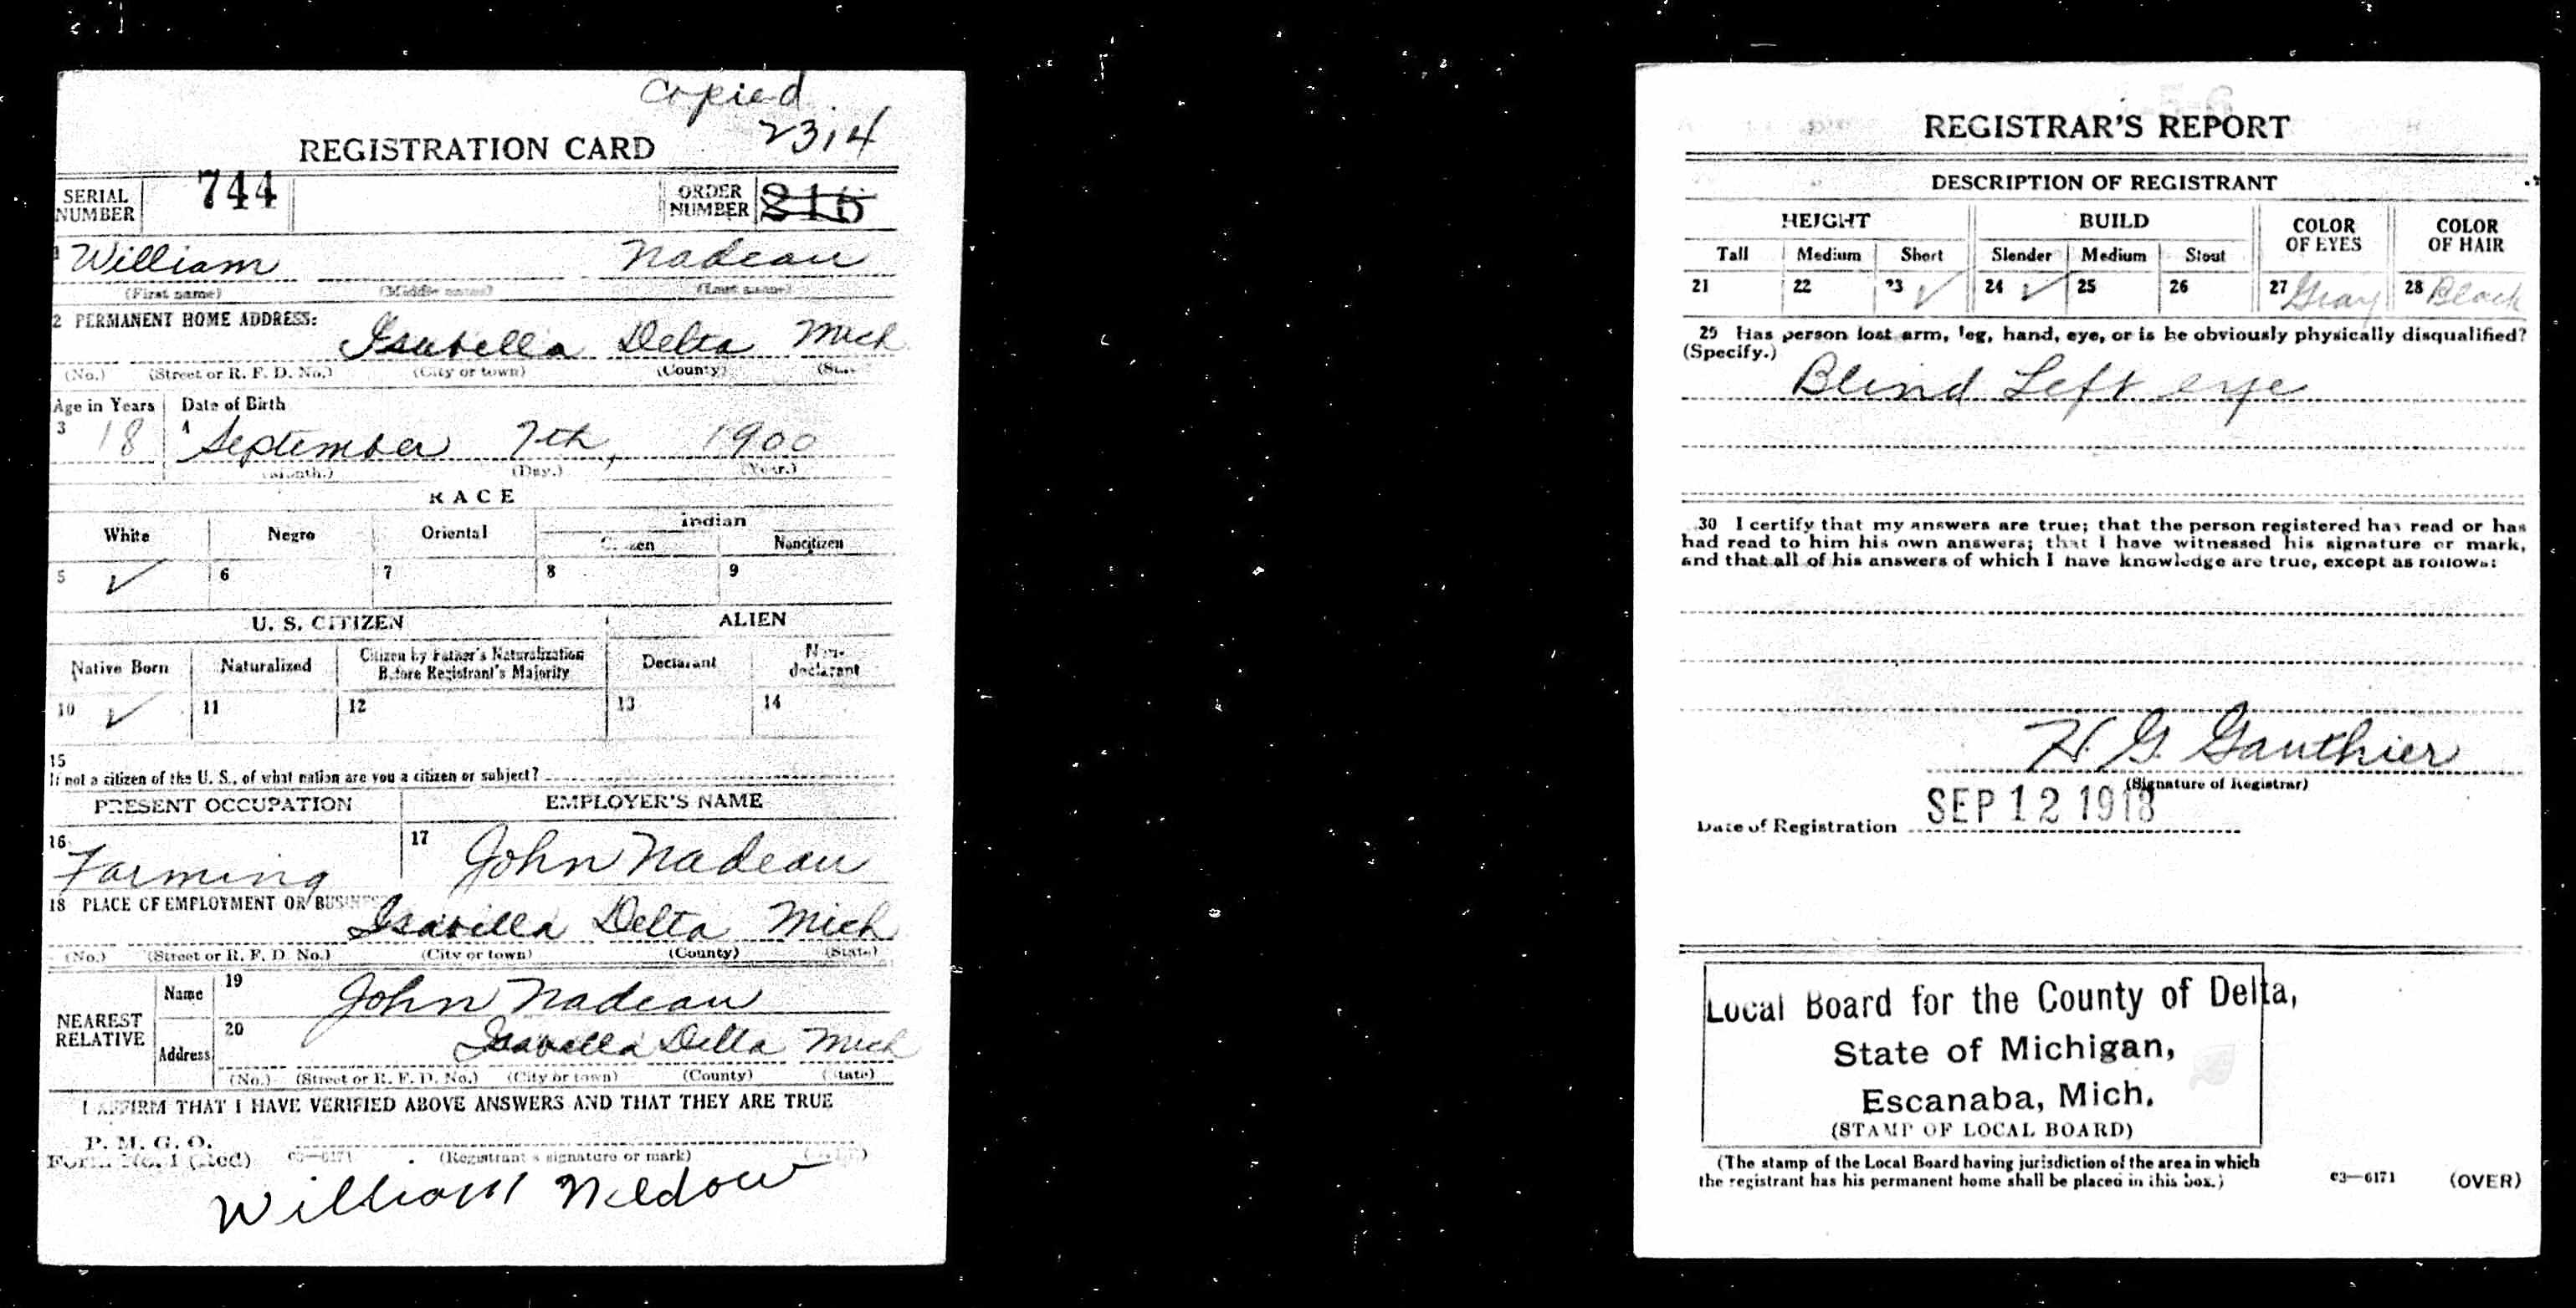 Copied
2314
REGISTRATION CARD
SERIAL NUMBER 744 ORDER NUMBER 216
1 William Nadeau
(First name) (Middle name) (Last name)
2 PERMANENT HOME ADDRESS:
Isabella Delta Mich
(No.) (Street or R. F. D. No.) (City or town) (County) (State)
Age in Years Date of Birth
3 18 4 September 7th, 1900
(Month.) (Day.) (Year.)
RACE
White Negro Oriental Indian
Citizen Noncitizen
5 ✓ 6 7 8 9
U. S. CITIZEN ALIEN
Native Born Naturalized Citizen by Father's Naturalization Before Registrant's Majority Declarant Non-declarant
10 ✓ 11 12 13 14
15
If not a citizen of the U. S., of what nation are you a citizen or subject?
PRESENT OCCUPATION EMPLOYER'S NAME
16 Farming 17 John Nadeau
18 PLACE OF EMPLOYMENT OR BUSINESS
Isavilla Delta Mich
(No.) (Street or R. F. D. No.) (City or town) (County) (State)
NEAREST RELATIVE
Name 19 John Nadeau
Address 20 Isavalla Delta Mich
(No.) (Street or R. F. D. No.) (City or town) (County) (State)
I AFFIRM THAT I HAVE VERIFIED ABOVE ANSWERS AND THAT THEY ARE TRUE
P. M. G. O.
Form No. 1 (Red) c3—6171 (Registrant's signature or mark) (OVER)
William Neldow
REGISTRAR'S REPORT
DESCRIPTION OF REGISTRANT
HEIGHT BUILD COLOR OF EYES COLOR OF HAIR
Tall Medium Short Slender Medium Stout
21 22 23 ✓ 24 ✓ 25 26 27 Gray 28 Black
29 Has person lost arm, leg, hand, eye, or is he obviously physically disqualified?
(Specify.)
Blind Left eye
30 I certify that my answers are true; that the person registered has read or has
had read to him his own answers; that I have witnessed his signature or mark,
and that all of his answers of which I have knowledge are true, except as follows:
H. G. Gauthier
(Signature of Registrar)
Date of Registration SEP 12 1918
Local Board for the County of Delta,
State of Michigan,
Escanaba, Mich.
(STAMP OF LOCAL BOARD)
(The stamp of the Local Board having jurisdiction of the area in which
the registrant has his permanent home shall be placed in this box.)
c3—6171 (OVER)